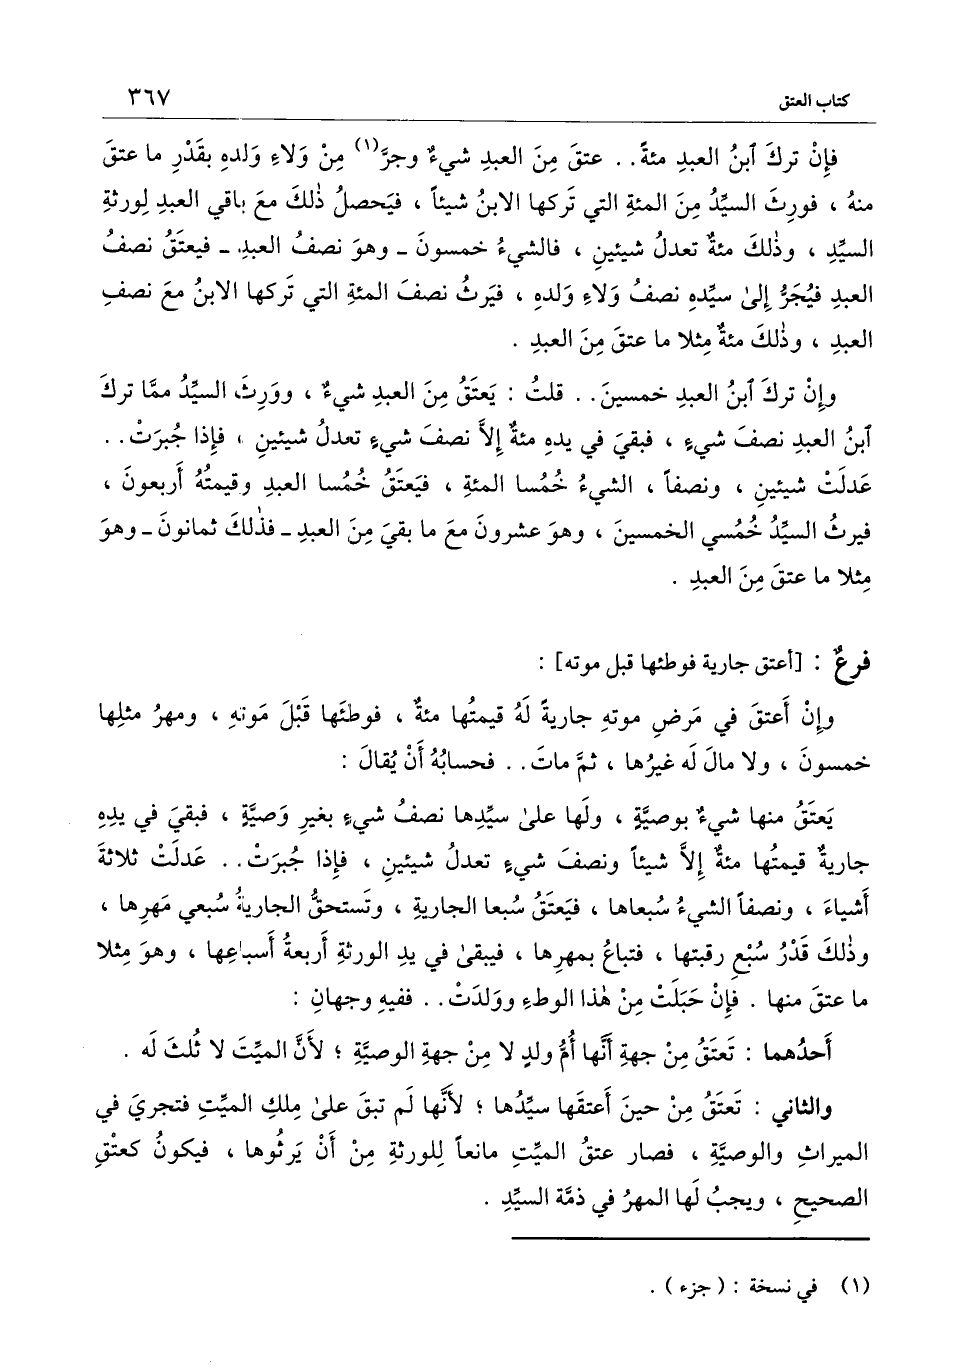 كتاب العتق ٣٦٧
فإِنْ تركَ ٱبنُ العبدِ مئةً.. عتقَ مِنَ العبدِ شيءٌ وجرَّ(١) مِنْ وَلاءِ وَلدهِ بقَدْرِ ما عتقَ
منهُ ، فورِثَ السيِّدُ مِنَ المئةِ التي تَركها الابنُ شيئاً ، فيَحصلُ ذٰلكَ معَ باقي العبدِ لِورثةِ
السيِّدِ ، وذٰلكَ مئةٌ تعدلُ شيئينِ ، فالشيءُ خمسونَ ـ وهوَ نصفُ العبدِ ـ فيعتقُ نصفُ
العبدِ فيُجَرُّ إِلىٰ سيِّدهِ نصفُ وَلاءِ وَلدهِ ، فيَرثُ نصفَ المئةِ التي تَركها الابنُ معَ نصفِ
العبدِ ، وذٰلكَ مئةٌ مِثلا ما عتقَ مِنَ العبدِ .
وإِنْ تركَ ٱبنُ العبدِ خمسينَ.. قلتُ : يَعتَقُ مِنَ العبدِ شيءٌ ، ووَرِثَ السيِّدُ ممَّا تركَ
ٱبنُ العبدِ نصفَ شيءٍ ، فبقيَ في يدهِ مئةٌ إِلاَّ نصفَ شيءٍ تعدلُ شيئينِ ، فإِذا جُبرَتْ..
عَدلَتْ شيئينِ ، ونصفاً ، الشيءُ خُمُسا المئةِ ، فيَعتَقُ خُمُسا العبدِ وقيمتُهُ أَربعونَ ،
فيرثُ السيِّدُ خُمُسي الخمسينَ ، وهوَ عشرونَ معَ ما بقيَ مِنَ العبدِ ـ فذٰلكَ ثمانونَ ـ وهوَ
مِثلا ما عتقَ مِنَ العبدِ .
فرعٌ : [أعتق جارية فوطئها قبل موته] :
وإِنْ أَعتقَ في مَرضِ موتهِ جاريةً لَهُ قيمتُها مئةٌ ، فوطئَها قَبْلَ مَوتهِ ، ومهرُ مثلِها
خمسونَ ، ولا مالَ لَه غيرُها ، ثمَّ ماتَ.. فحسابُهُ أَنْ يُقالَ :
يَعتَقُ منها شيءٌ بوصيَّةٍ ، ولَها علىٰ سيِّدها نصفُ شيءٍ بغيرِ وَصيَّةٍ ، فبقيَ في يدِهِ
جاريةٌ قيمتُها مئةٌ إِلاَّ شيئاً ونصفَ شيءٍ تعدلُ شيئينِ ، فإِذا جُبرَتْ.. عَدلَتْ ثلاثةَ
أَشياءَ ، ونصفاً الشيءُ سُبعاها ، فيَعتَقُ سُبعا الجاريةِ ، وتَستحقُّ الجاريةُ سُبعي مَهرِها ،
وذٰلكَ قَدْرُ سُبْعِ رقبتها ، فتباعُ بمهرِها ، فيبقىٰ في يدِ الورثةِ أَربعةُ أَسباعِها ، وهوَ مِثلا
ما عتقَ منها . فإِنْ حَبَلَتْ مِنْ هٰذا الوطءِ ووَلدَتْ.. ففيهِ وجهانِ :
أَحدُهما : تَعتَقُ مِنْ جهةِ أَنَّها أُمُّ ولدٍ لا مِنْ جهةِ الوصيَّةِ ؛ لأَنَّ الميِّتَ لا ثُلثَ لَه .
والثاني : تَعتَقُ مِنْ حينَ أَعتقَها سيِّدُها ؛ لأَنَّها لَم تبقَ علىٰ مِلكِ الميِّتِ فتجريَ في
الميراثِ والوصيَّةِ ، فصار عتقُ الميِّتِ مانعاً لِلورثةِ مِنْ أَنْ يَرثُوها ، فيكونُ كعتْقِ
الصحيحِ ، ويجبُ لَها المهرُ في ذمَّة السيِّدِ .
(١) في نسخة : ( جزء ) .